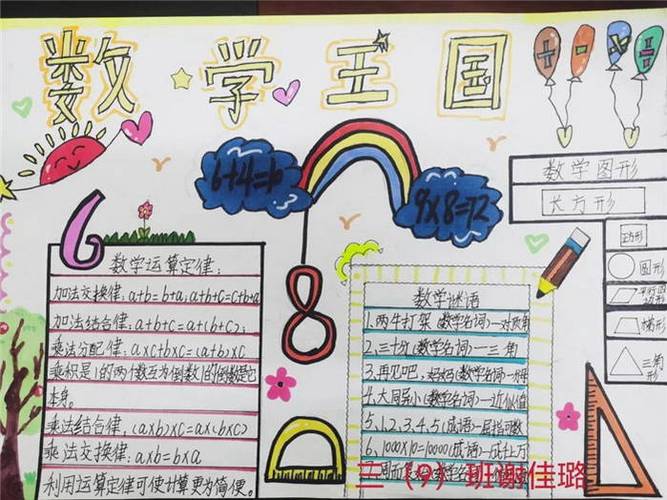 数学王国
6+4=10
9×8=72
数学图形
长方形
正方形
圆形
平行四边形
梯形
三角形
6
8
数学运算定律:
加法交换律:a+b=b+a;a+b+c=c+b+a
加法结合律:a+b+c=a+(b+c);
乘法分配律:a×c+b×c=(a+b)×c
乘积是1的两个数互为倒数,1的倒数是它
本身。
乘法结合律,(a×b)×c=a×(b×c)
乘法交换律:a×b=b×a
利用运算定律可使计算更为简便。
数学谜语
1.两牛打架(数学名词)—对顶角
2.三十分(数学名词)—三角
3.再见吧,妈妈(数学名词)—
4.大同小(数学名词)—近似值
5.1、2、3、4、5(成语)—屈指可数
6.1000×10=10000(成语)—成千上万
7.周而
三(9)班谢佳璐